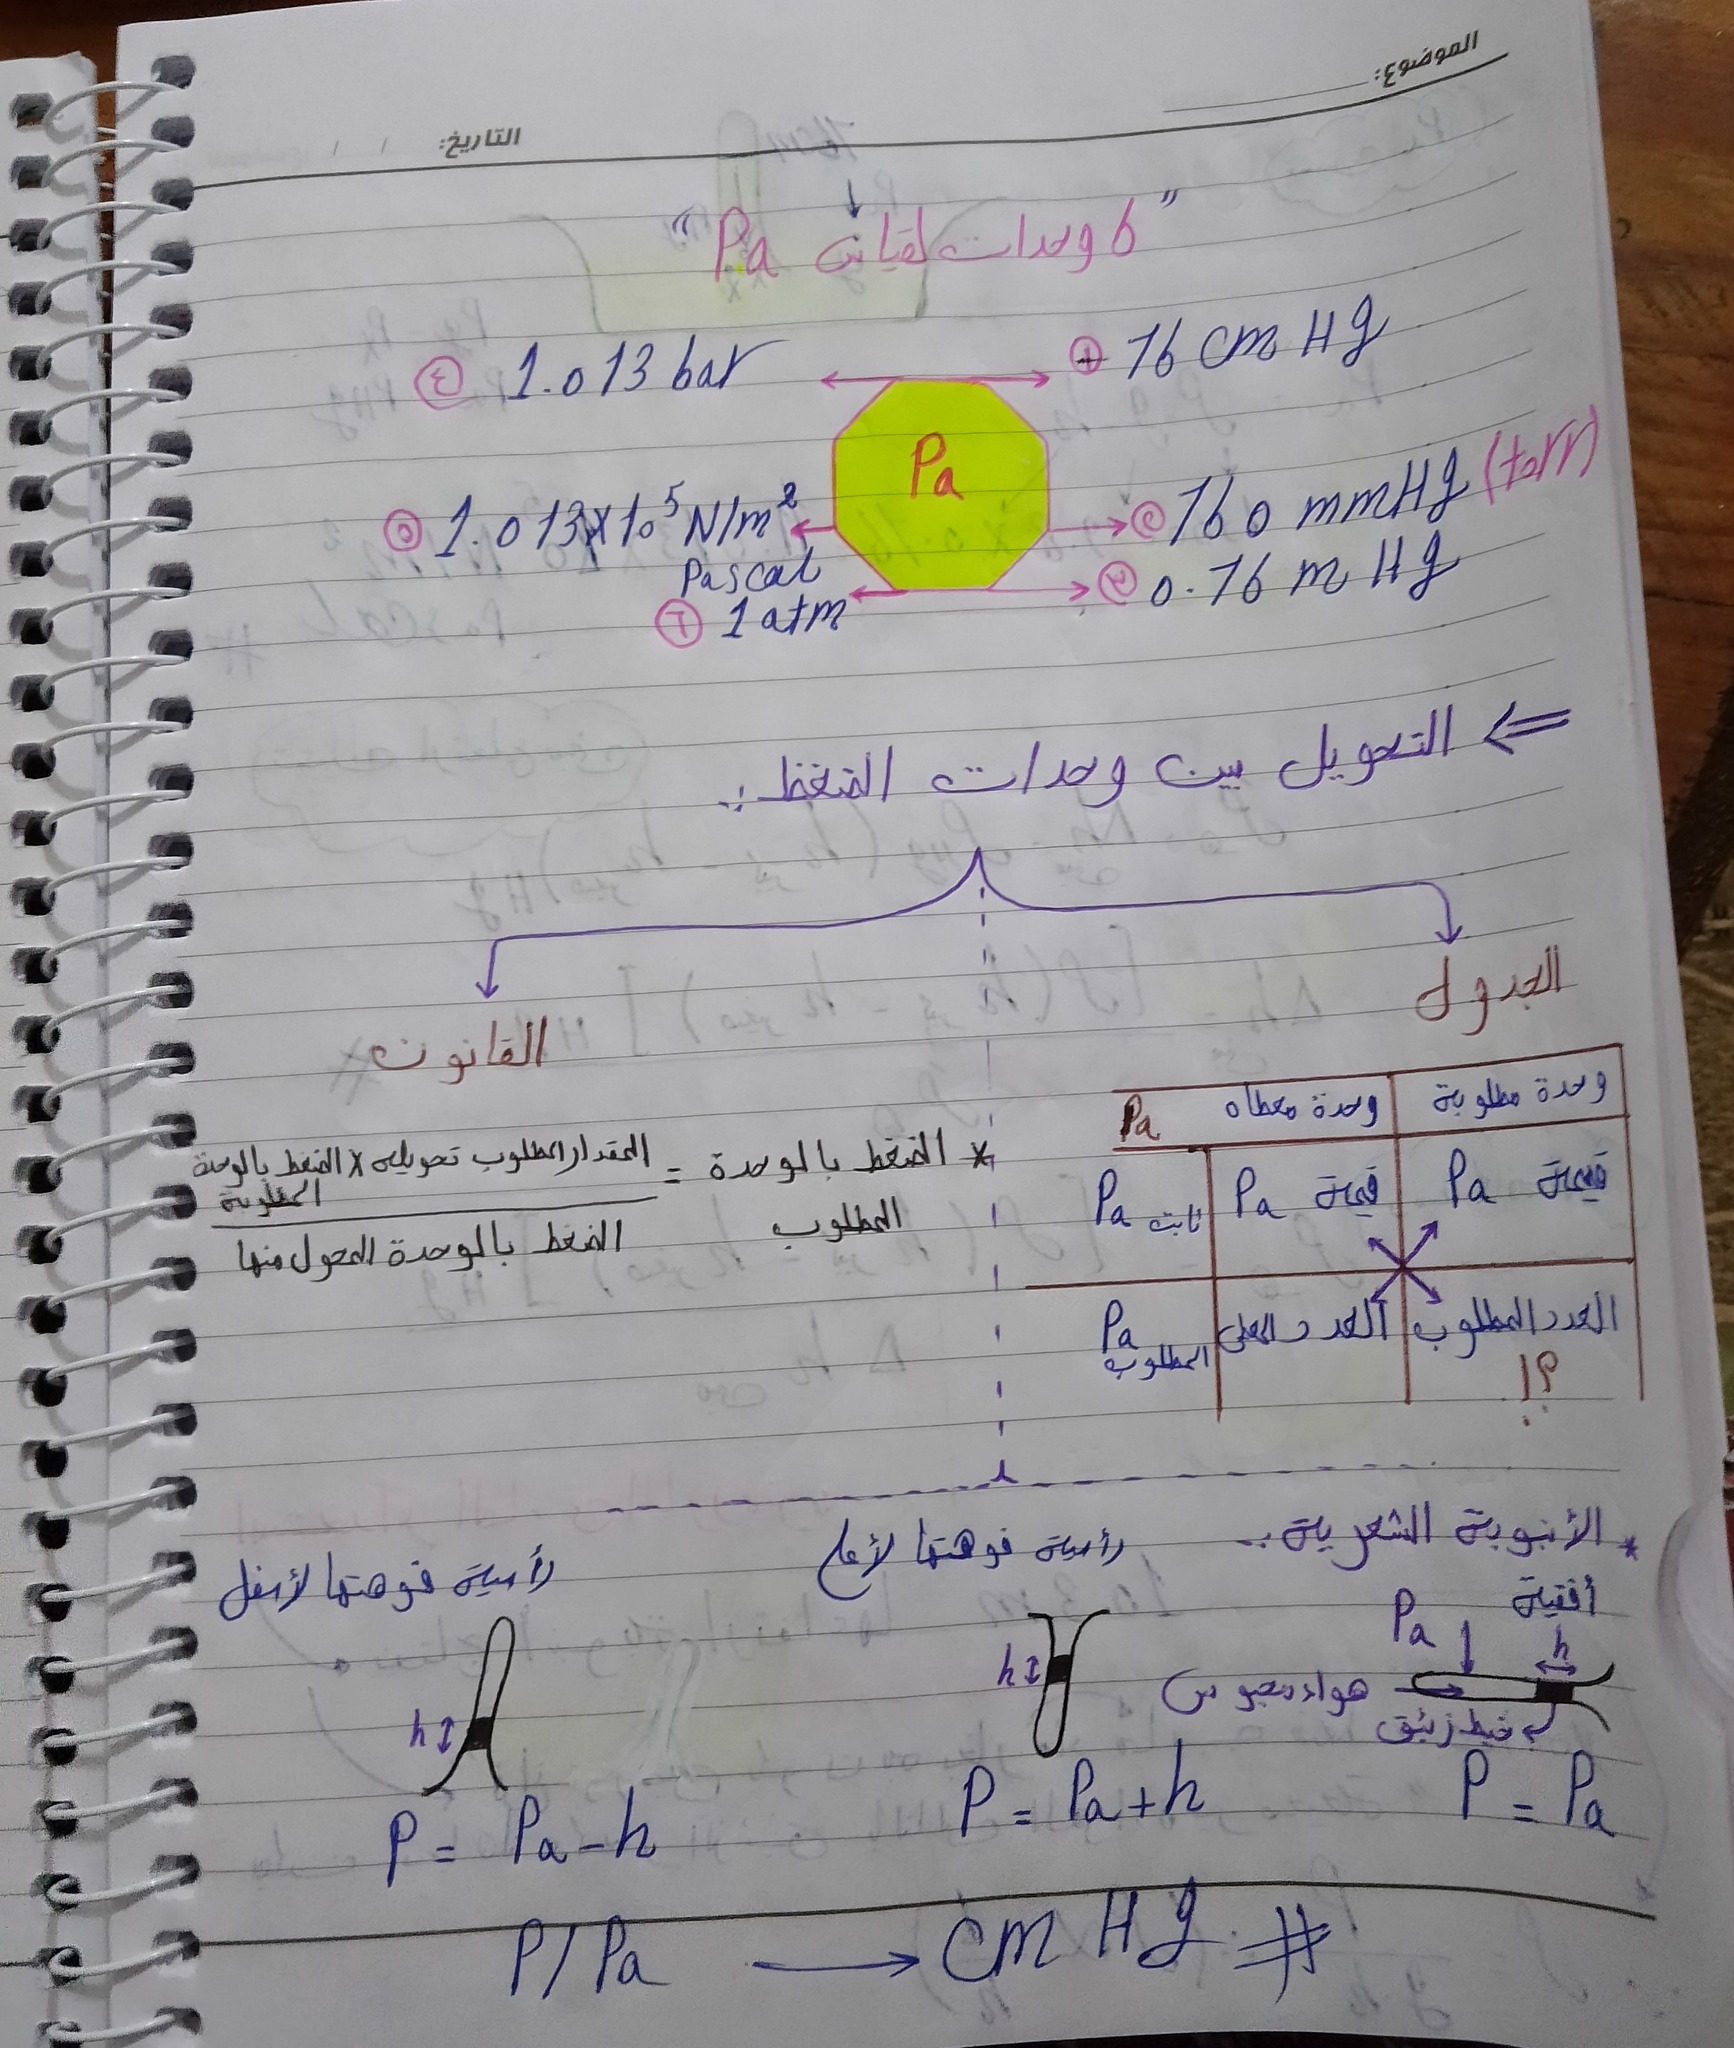 الموضوع:
التاريخ: / /
"٦ وحدات لقياس Pa"
① 76 cm Hg
② 760 mmHg (torr)
③ 0.76 m Hg
Pa
④ 1.013 bar
⑤ 1.013×10⁵ N/m²
Pascal
⑥ 1 atm
⇐ التحويل بين وحدات الضغط :.
الجدول
وحدة مطلوبة وحدة معطاه Pa
قيمة Pa قيمة Pa Pa ثابت
العدد المطلوب العدد المعطى Pa المطلوب
؟!
القانون
* الضغط بالوحدة = المقدار المطلوب تحويله × الضغط بالوحدة
المطلوب المطلوبة
الضغط بالوحدة المحول منها
* الأنبوبة الشعرية :.
أفقية
Pa
h
هواء محبوس
خيط زئبق
P = Pa
رأسية فوهتها لأعلى
h
P = Pa + h
رأسية فوهتها لأسفل
h
P = Pa - h
P/Pa → cm Hg #